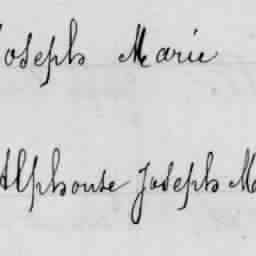 Joseph Marie
Alphonse Joseph Ma